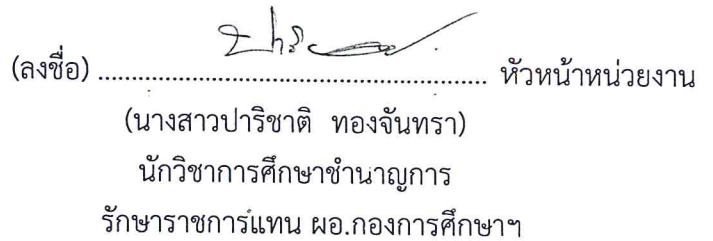 (ลงชื่อ) ........................................................ หัวหน้าหน่วยงาน
(นางสาวปาริชาติ ทองจันทรา)
นักวิชาการศึกษาชำนาญการ
รักษาราชการแทน ผอ.กองการศึกษาฯ